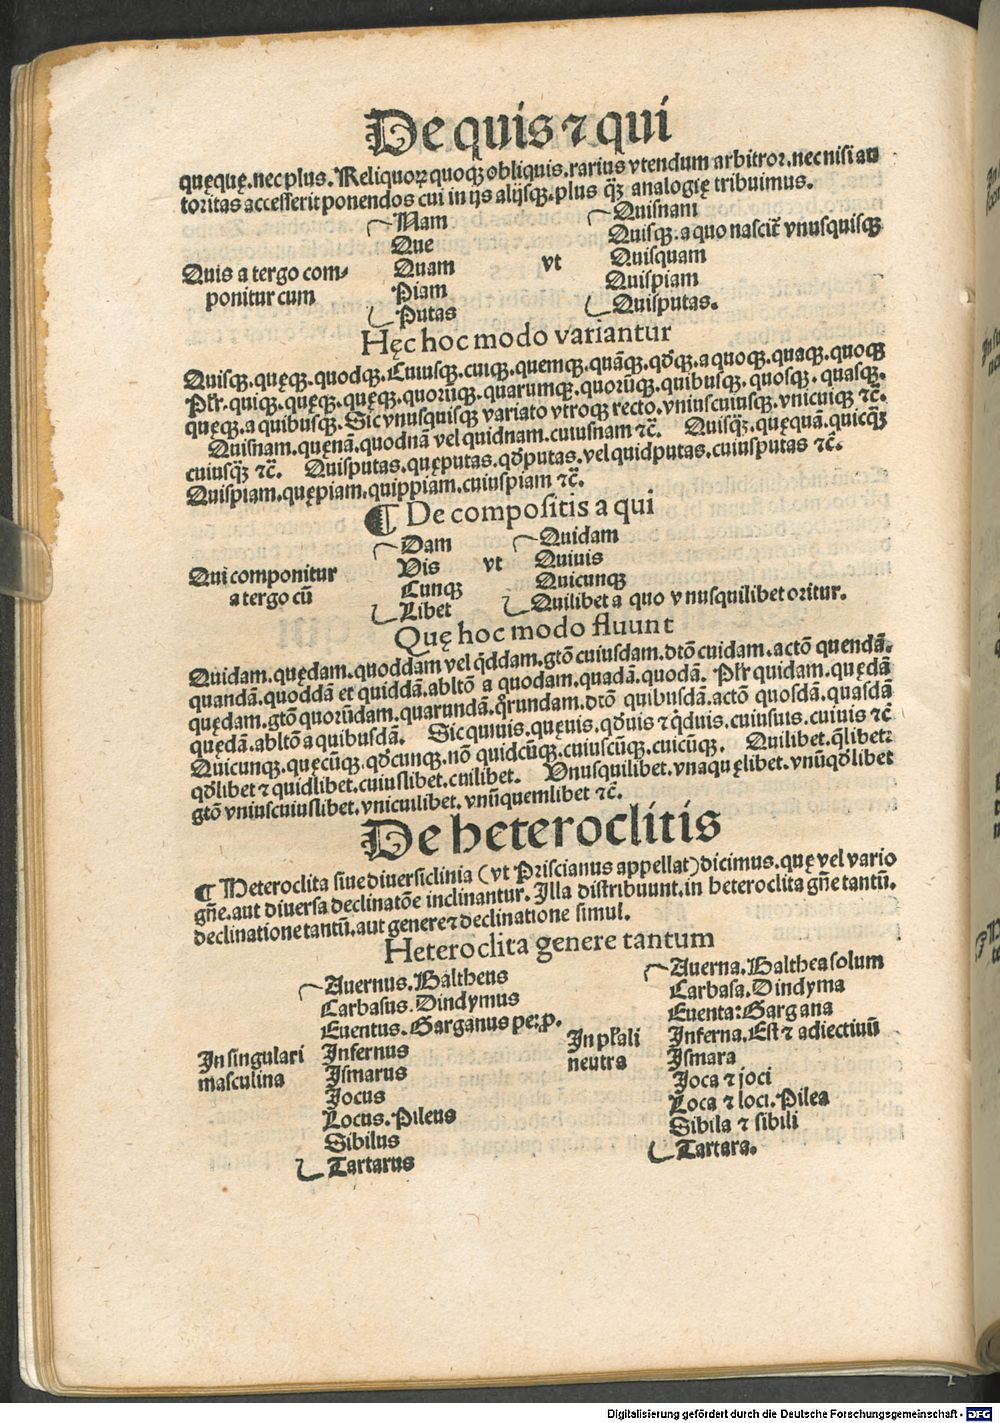 De quis ⁊ qui
quęquę. nec plus. Reliquoꝝ quoqꝫ obliquis. rarius vtendum arbitror. nec nisi au
toritas accesserit ponendos cui in ijs alijsqꝫ. plus qꝫ̃ analogię tribuimus.
Quis a tergo com-
ponitur cum
Nam
Que
Quam
Piam
Putas
vt
Quisnam
Quisqꝫ. a quo nascit᷑ vnusquisqꝫ
Quisquam
Quispiam
Quisputas.
Hęc hoc modo variantur
Quisqꝫ. quęqꝫ. quodqꝫ. Cuiusqꝫ. cuiqꝫ. quemqꝫ. quãqꝫ. qđqꝫ. a quoqꝫ. quaqꝫ. quoqꝫ
Płr. quiqꝫ. quęqꝫ. quęqꝫ. quorũqꝫ. quarumqꝫ. quorũqꝫ. quibusqꝫ. quosqꝫ. quasqꝫ.
quęqꝫ. a quibusqꝫ. Sic vnusquisqꝫ variato vtroqꝫ recto. vniuscuiusqꝫ. vnicuiqꝫ ⁊c̃.
Quisnam. quęnã. quodnã vel quidnam. cuiusnam ⁊c̃. Quisqꝫ̃. quęquã. quicqꝫ̃
cuiusqꝫ̃ ⁊c̃. Quisputas. quęputas. qđputas. vel quidputas. cuiusputas ⁊c̃.
Quispiam. quępiam. quippiam. cuiuspiam ⁊c̃.
¶ De compositis a qui
Qui componitur
a tergo cũ
Dam
Vis
Cunqꝫ
Libet
vt
Quidam
Quiuis
Quicunqꝫ
Quilibet a quo vnusquilibet oritur.
Quę hoc modo fluunt
Quidam. quędam. quoddam vel qđdam. gtõ cuiusdam. dtõ cuidam. actõ quendã.
quandã. quoddã et quiddã. abltõ a quodam. quadã. quodã. Płr quidam. quędã
quędam. gtõ quorũdam. quarundã. qrundam. dtõ quibusdã. actõ quosdã. quasdã
quędã. abltõ a quibusdã. Sic quiuis. quęuis. qđuis ⁊ qđuis. cuiusuis. cuiuis ⁊c̃
Quicunqꝫ. quęcũqꝫ. qđcunqꝫ. nõ quidcũqꝫ. cuiuscũqꝫ. cuicũqꝫ. Quilibet. q̃libet:
qđlibet ⁊ quidlibet. cuiuslibet. cuilibet. Vnusquilibet. vnaquęlibet. vnũqđlibet
gtõ vniuscuiuslibet. vnicuilibet. vnũquemlibet ⁊c̃.
De heteroclitis
¶ Heteroclita siue diuersiclinia (vt Priscianus appellat) dicimus. quę vel vario
gñe. aut diuersa declinatõe inclinantur. Illa distribuunt. in heteroclita gñe tantũ.
declinatione tantũ. aut genere ⁊ declinatione simul.
Heteroclita genere tantum
In singulari
masculina
Auernus. Baltheus
Carbasus. Dindymus
Euentus. Garganus
Infernus
Ismarus
Jocus
Locus. Pileus
Sibilus
Tartarus
In płali
neutra
Auerna. Balthea solum
Carbasa. Dindyma
Euenta: Gargana
Inferna. Est ⁊ adiectiuũ
Ismara
Joca ⁊ joci
Loca ⁊ loci. Pilea
Sibila ⁊ sibili
Tartara.
Digitalisierung gefördert durch die Deutsche Forschungsgemeinschaft - DFG